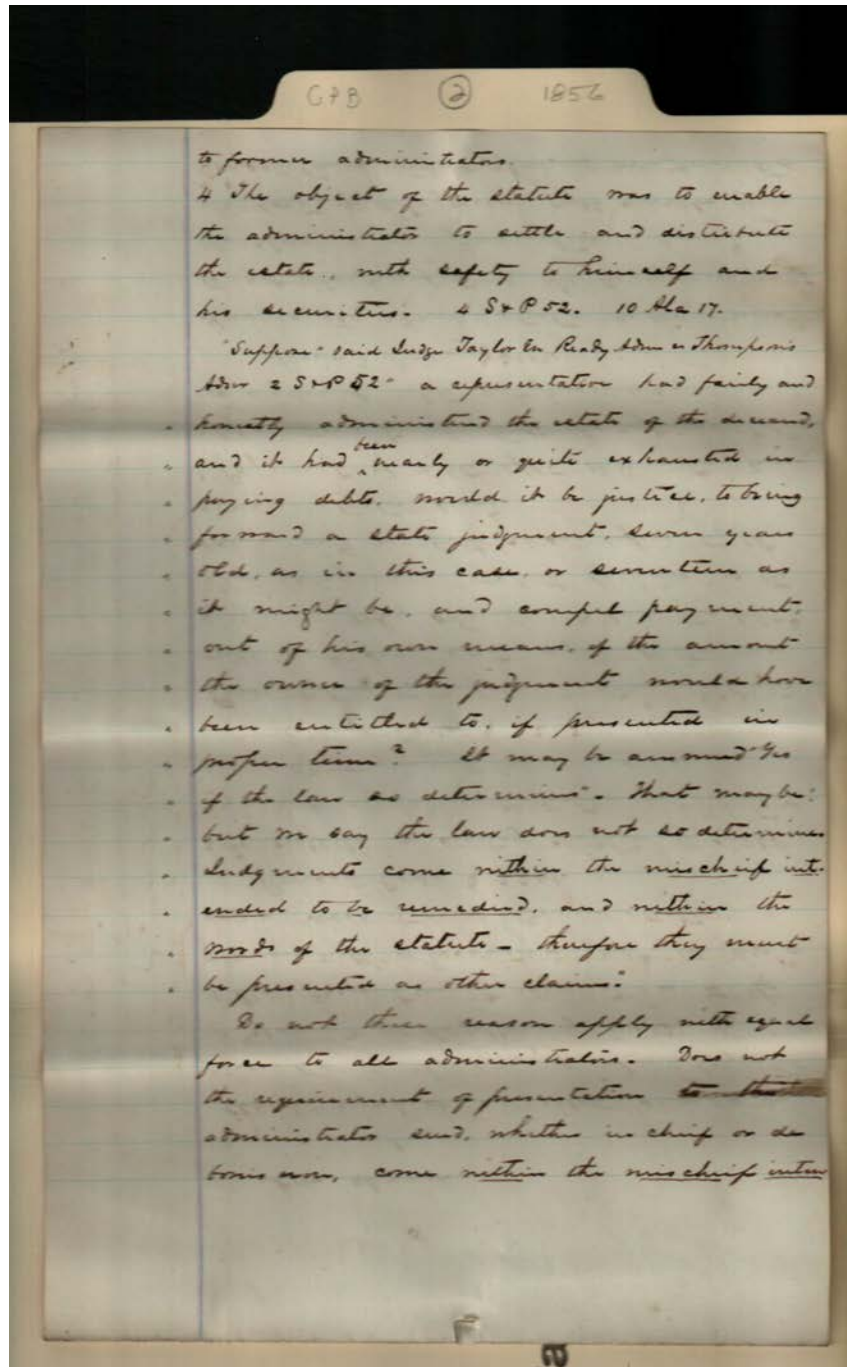 GPB (2) 1856
to former administrators.
4 The object of the statute was to enable
the administrator to settle and distribute
the estate, with safety to himself and
his securities. 4 S & P 52. 10 Ala 17.
"Suppose" said Judge Taylor in Ready Admr vs Thompson's
Admr 2 S & P 52 " a representative had fairly and
" honestly administered the estate of the deceased,
" and it had been nearly or quite exhausted in
" paying debts. would it be justice, to bring
" forward a stale judgment, seven years
" old, as in this case, or seventeen as
" it might be, and compel payment,
" out of his own means, of the amount
" the owner of the judgment would have
" been entitled to, if presented in
" proper time? It may be answered "Yes
" if the law so determines". That may be:
but we say the law does not so determine
" Judgments come within the mischief int-
" ended to be remedied, and within the
" words of the statute — therefore they must
" be presented as other claims."
Do not these reason apply with equal
force to all administrators. Does not
the requirement of presentation to the
administrator, whether in chief or de
bonis non, come within the mischief inten